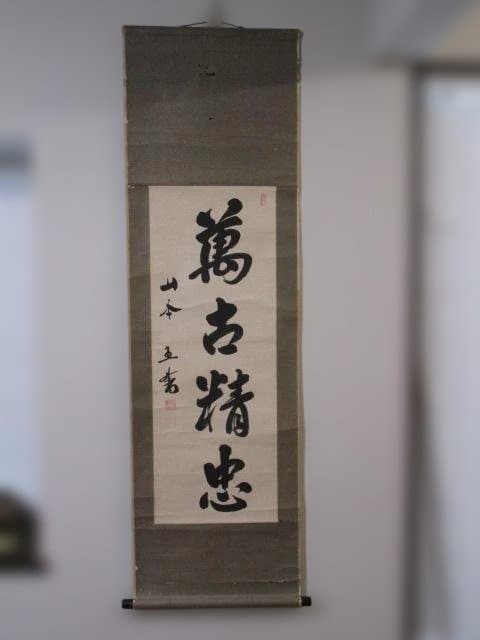 萬古精忠
山本五